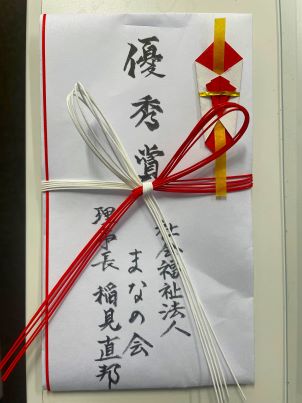 優秀賞
社会福祉法人
まなの会
理事長 稲見直邦